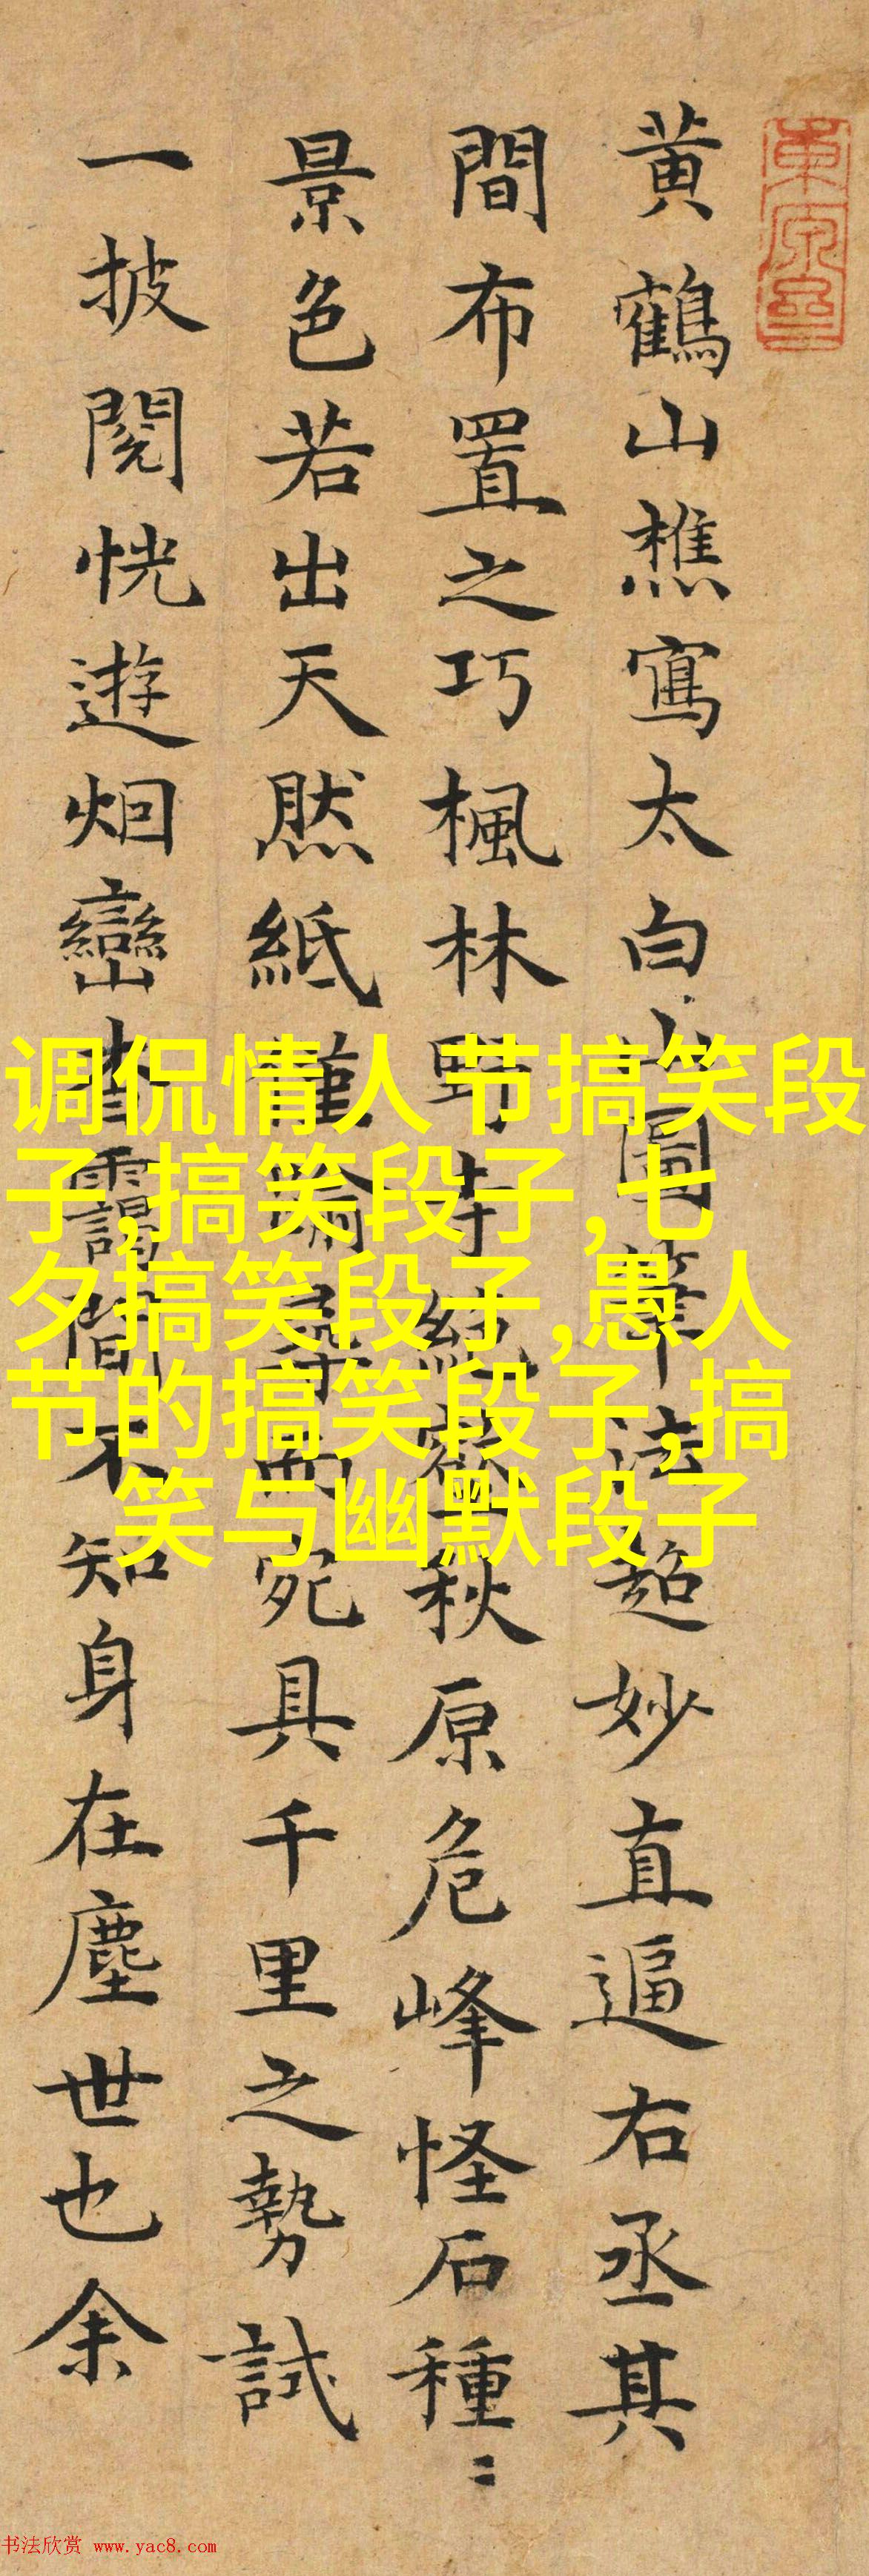 黄鶴山樵寫太白山圖筆法超妙直逼右丞其
間布置之巧楓林野寺絶㵳秋原危峰怪石種〻
景色若出天然紙僅踰尋而宛具千里之勢試
一披閱恍遊烟巒杳靄間不知身在塵世也余
调侃情人节搞笑段
子,搞笑段子,七
夕搞笑段子,愚人
节的搞笑段子,搞
笑与幽默段子
书法欣赏 www.yac8.com